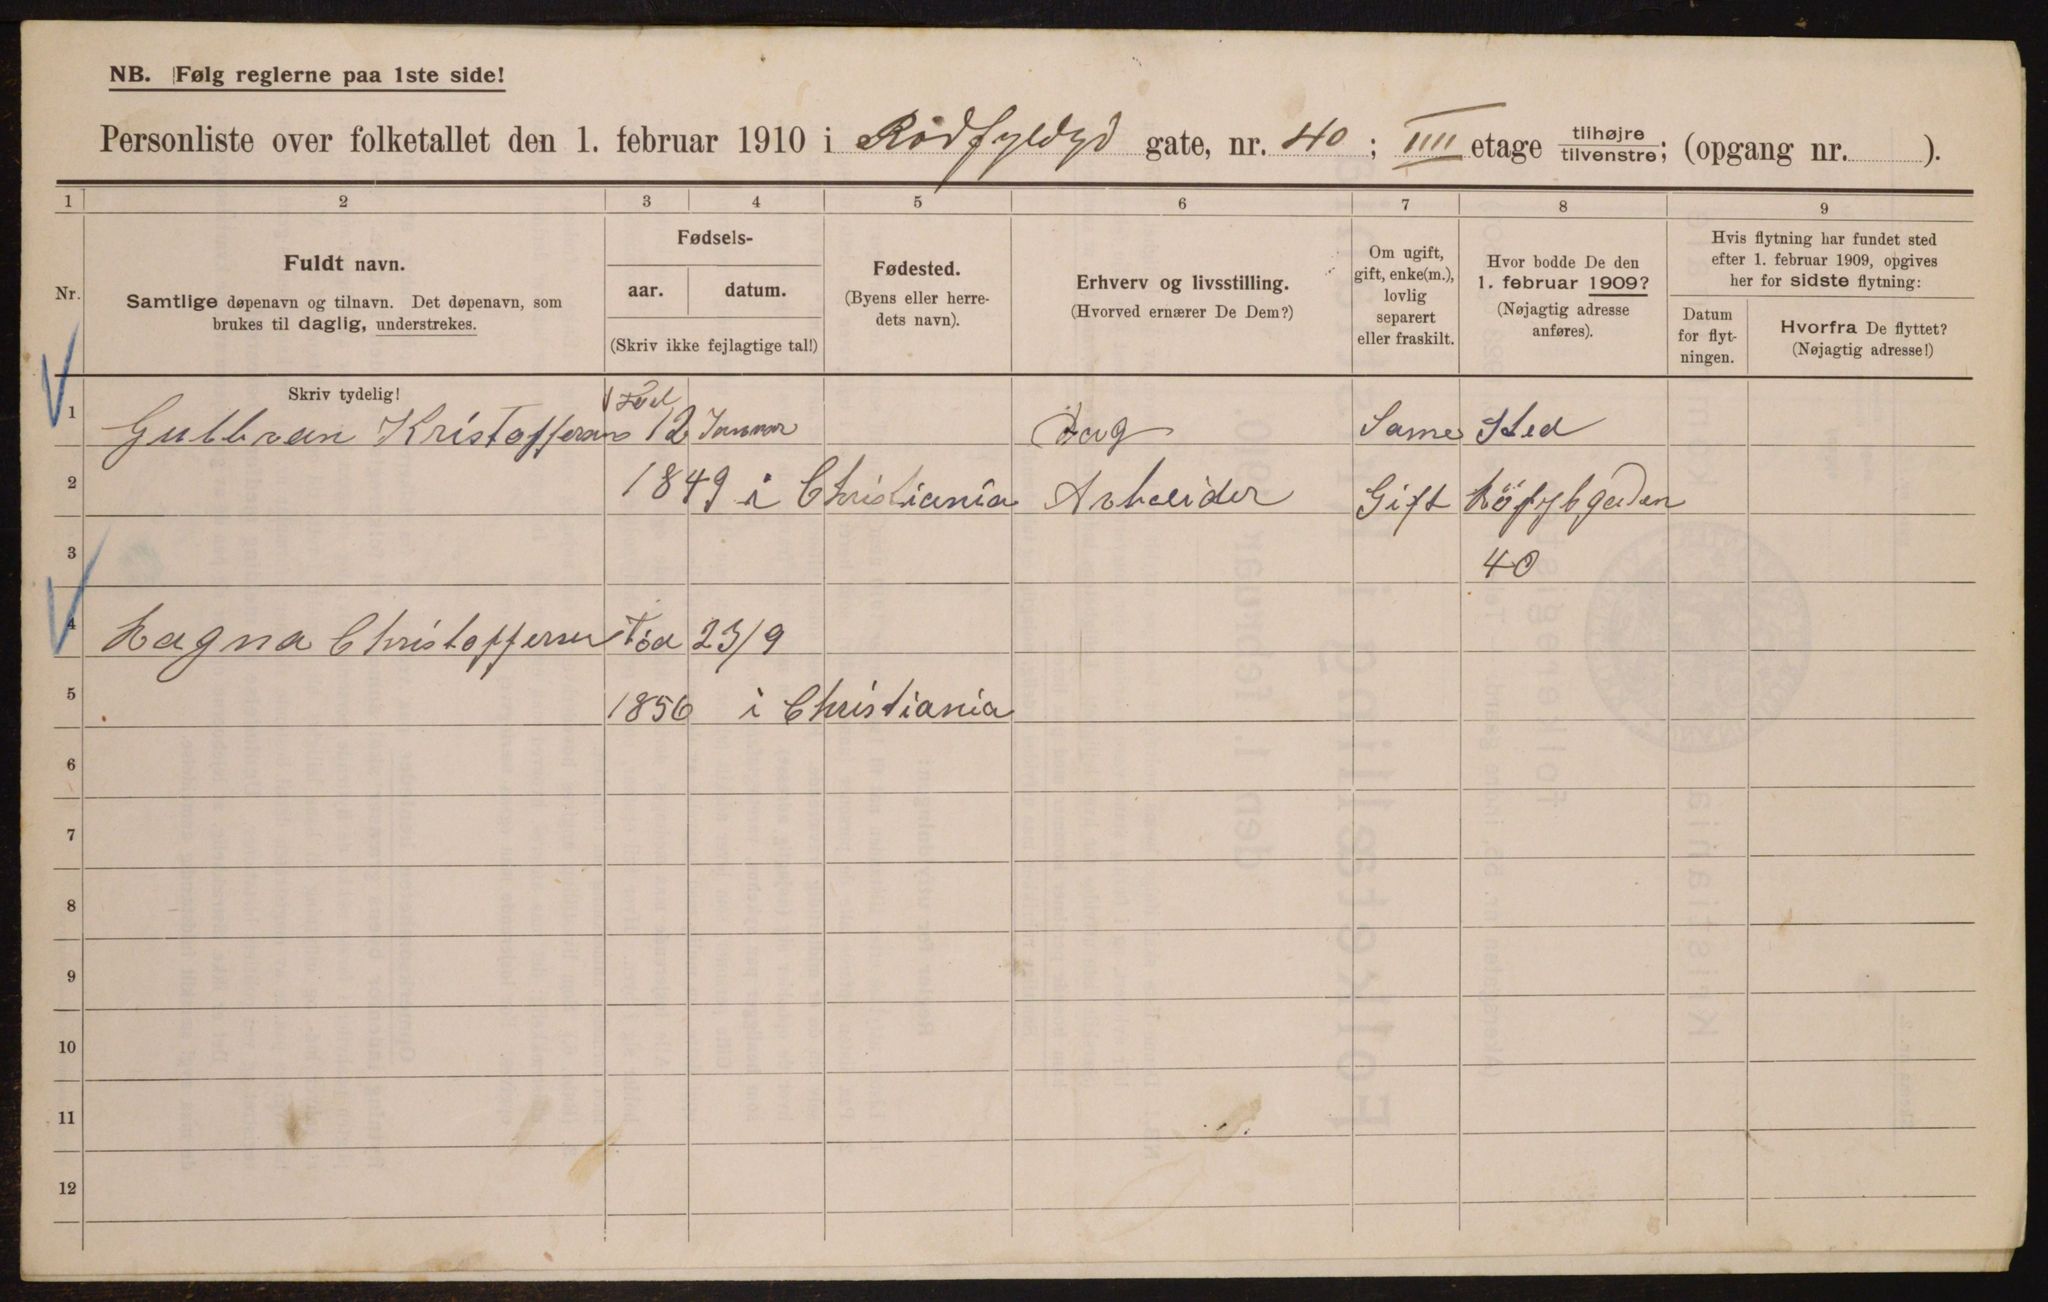 NB. Følg reglerne paa 1ste side!
Personliste over folketallet den 1. februar 1910 i Rodfyldyd gate, nr. 40; IIII etage tilhøjre/tilvenstre; (opgang nr. ).
1 2 3 4 5 6 7 8 9
Nr.
Fuldt navn.
Samtlige døpenavn og tilnavn. Det døpenavn, som
brukes til daglig, understrekes.
Fødsels-
aar. datum.
(Skriv ikke fejlagtige tal!)
Fødested.
(Byens eller herre-
dets navn).
Erhverv og livsstilling.
(Hvorved ernærer De Dem?)
Om ugift,
gift, enke(m.),
lovlig
separert
eller fraskilt.
Hvor bodde De den
1. februar 1909?
(Nøjagtig adresse
anføres).
Hvis flytning har fundet sted
efter 1. februar 1909, opgives
her for sidste flytning:
Datum
for flyt-
ningen.
Hvorfra De flyttet?
(Nøjagtig adresse!)
Skriv tydelig!
1 Gulbran Kristoffersen Föd 12 Januar Dag Same Sted
2 1849 i Christiania Arbeider Gift
3 40
4 Ragna Christoffersen Föd 23/9
5 1856 i Christiania
6
7
8
9
10
11
12